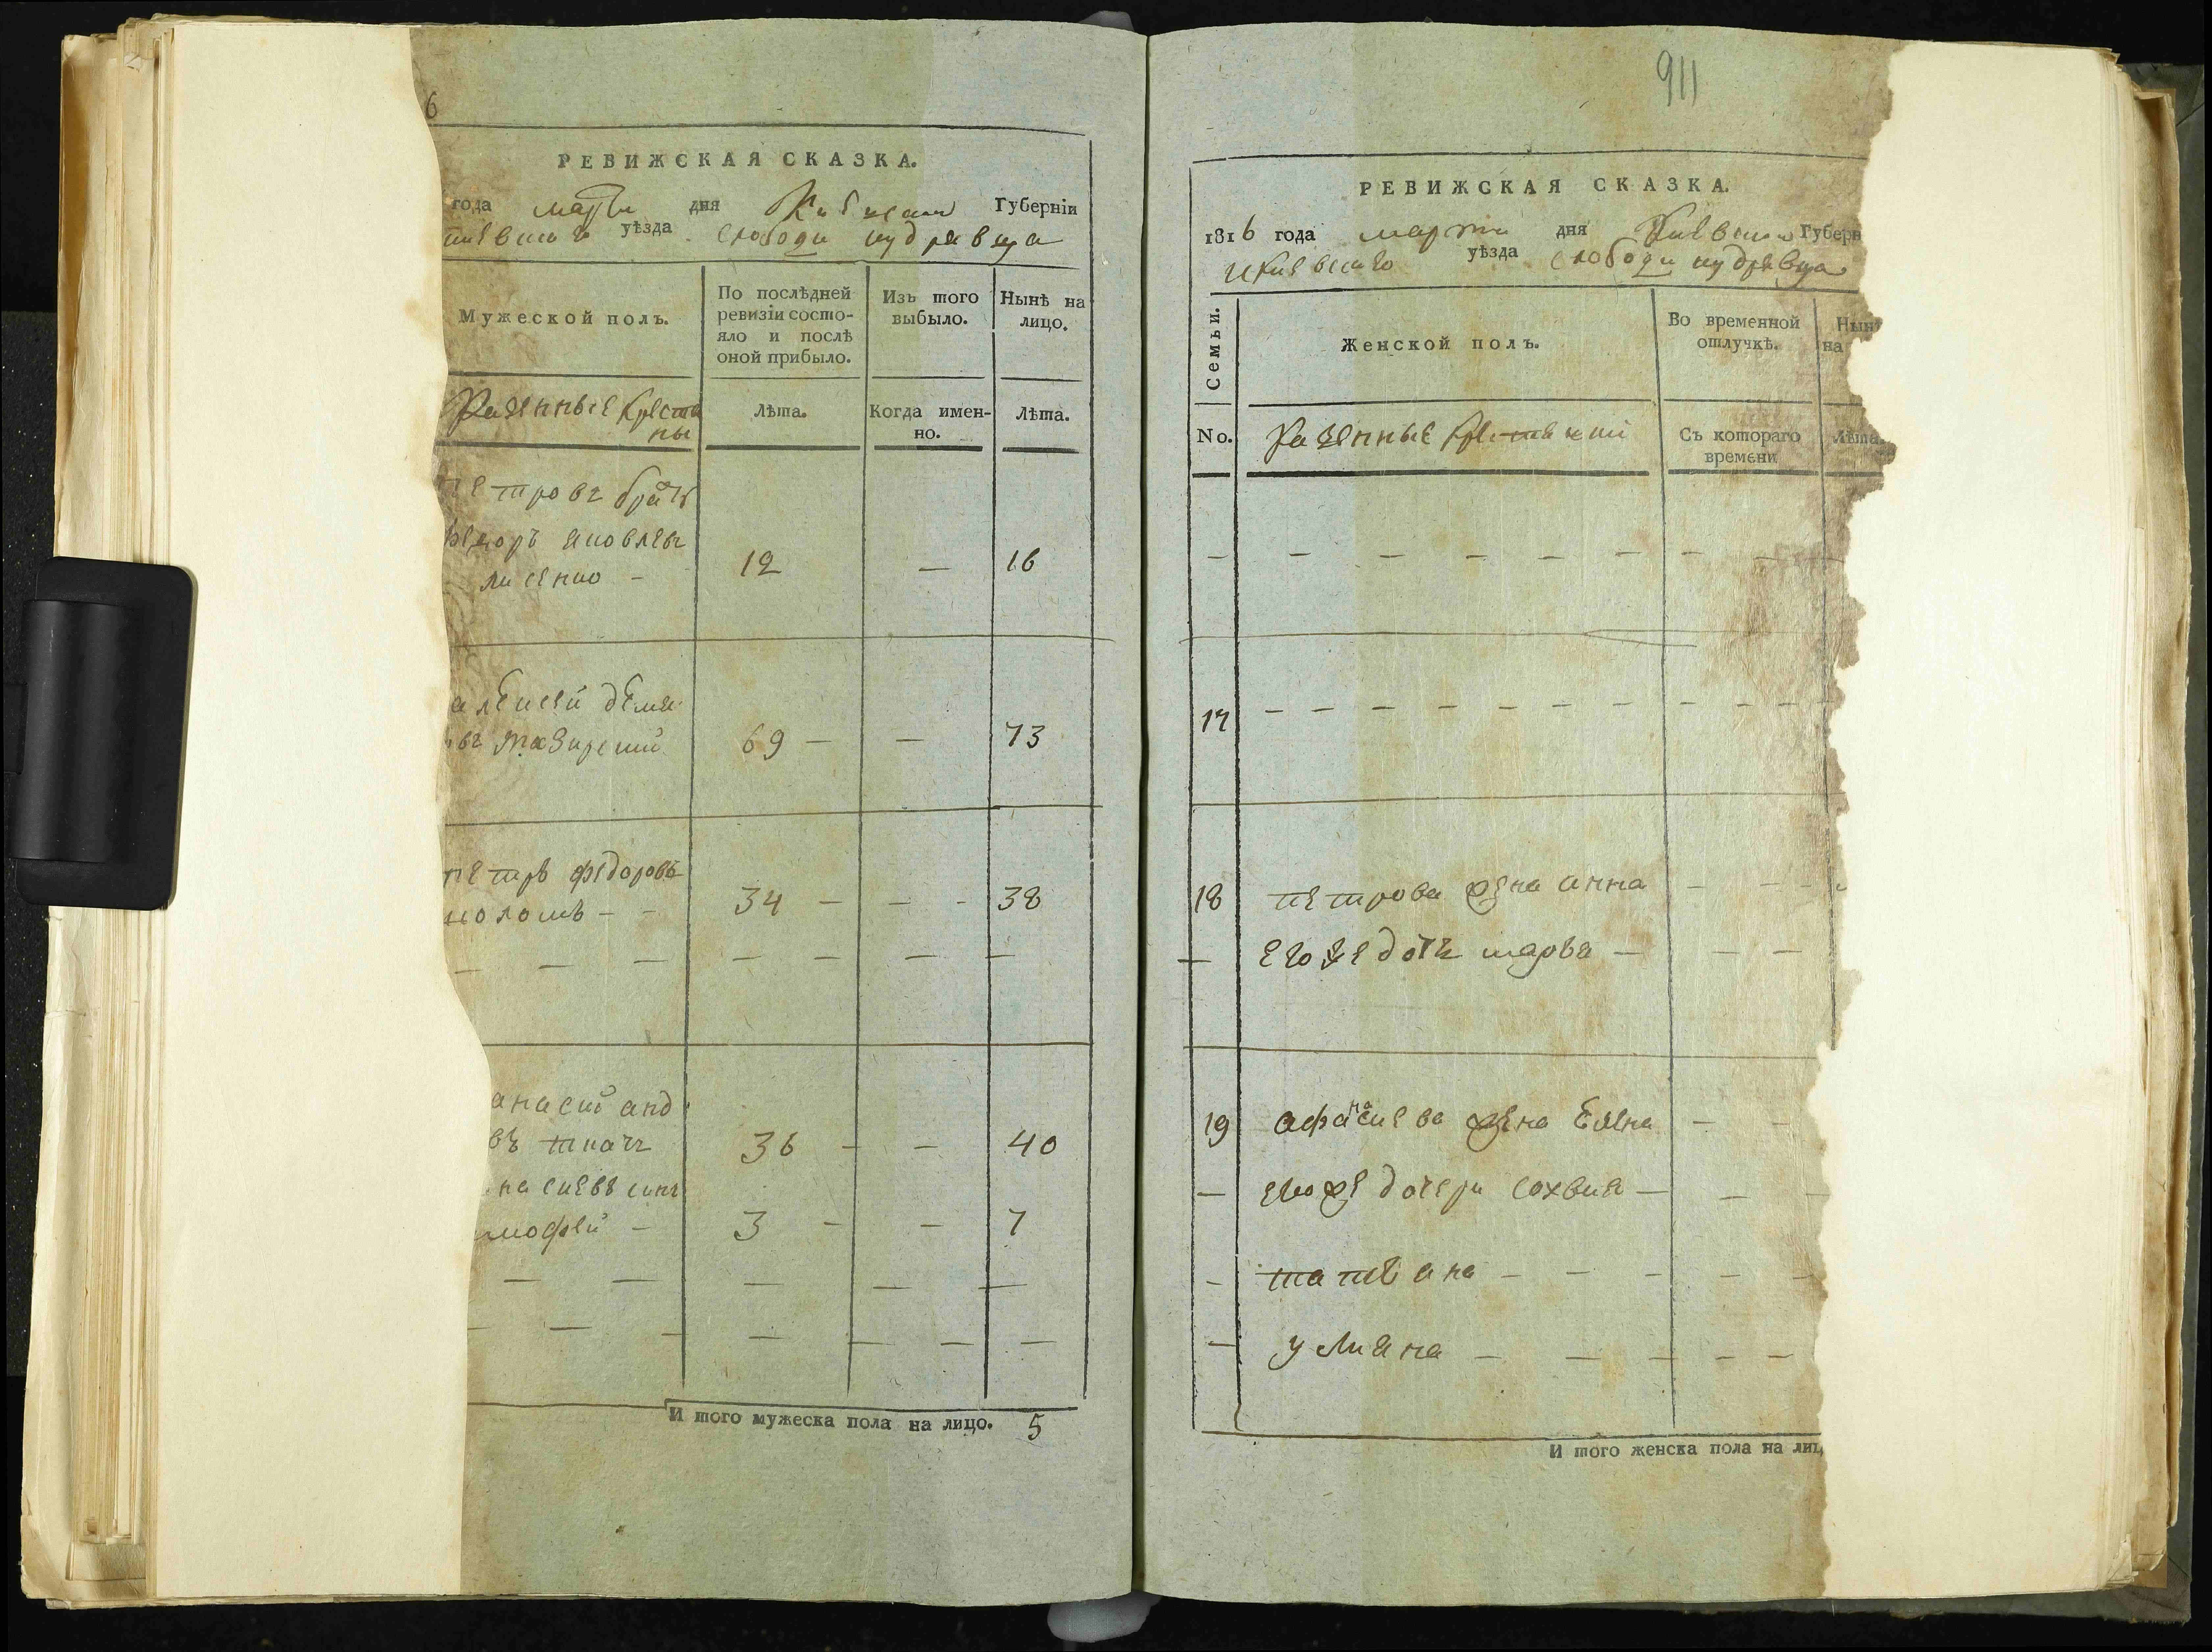 6
РЕВИЖСКАЯ СКАЗКА.
года марта дня Киевской Губерніи
киевского уѣзда слободи кудрявца
Мужеской полъ.
По послѣдней ревизіи состояло и послѣ оной прибыло.
Изъ того выбыло.
Нынѣ на лицо.
Казенные крестя
ны
Лѣта.
Когда именно.
Лѣта.
петровъ братъ
яковлевъ
лисенко - 12 — 16
алексей демя
69 — — 73
петръ федоровъ
34 — — - 38
анасий анд
въ ткачъ 36 - — 40
насиевъ синъ
мофей — 3 - — 7
И того мужеска пола на лицо. 5
911
РЕВИЖСКАЯ СКАЗКА.
1816 года марта дня Киевской Губерн
Киевского уѣзда слободи кудрявца
Семьи.
Женской полъ.
Во временной отлучкѣ.
Нын
на
No.
Казенные крестянки
Съ котораго времени
Лѣта.
17
18 петрова жена анна
его же дочь марва —
19 афанасиева жена Елена
его же дочери сохвия —
татеяна
улияна
И того женска пола на лиц